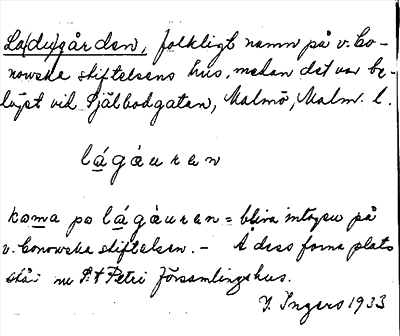 La(du)gården, folkligt namn på v. Co-
nowska stiftelsens hus, medan det var be-
läget vid Själbodgatan, Malmö, Malm. l.
lágåuren
koma po lágåuren = bliva intagen på
v. Conowska stiftelsen. – Å dess forna plats
står nu S:t Petri Församlingshus.
I. Ingers 1933